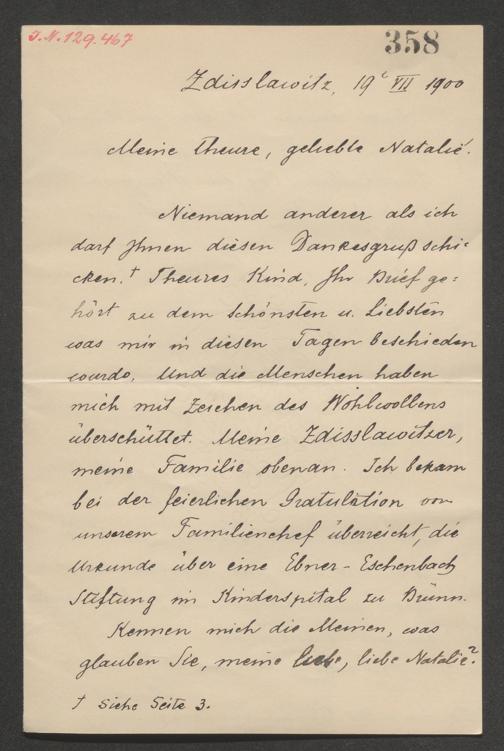 J.N. 129.467
358
Zdisslawitz, 19' VII 1900
Meine theure, geliebte Natalie!
Niemand anderer als ich
darf Ihnen diesen Dankesgruß schi-
cken.† Theures Kind, Ihr Brief ge-
hört zu dem Schönsten u. Liebsten
was mir in diesen Tagen beschieden
wurde. Und die Menschen haben
mich mit Zeichen des Wohlwollens
überschüttet. Meine Zdisslawitzer,
meine Familie obenan. Ich bekam
bei der feierlichen Gratulation von
unserem Familienchef überreicht, die
Urkunde über eine Ebner-Eschenbach
Stiftung im Kinderspital zu Brünn.
Kennen mich die Meinen, was
glauben Sie, meine liebe, liebe Natalie?
† Siehe Seite 3.